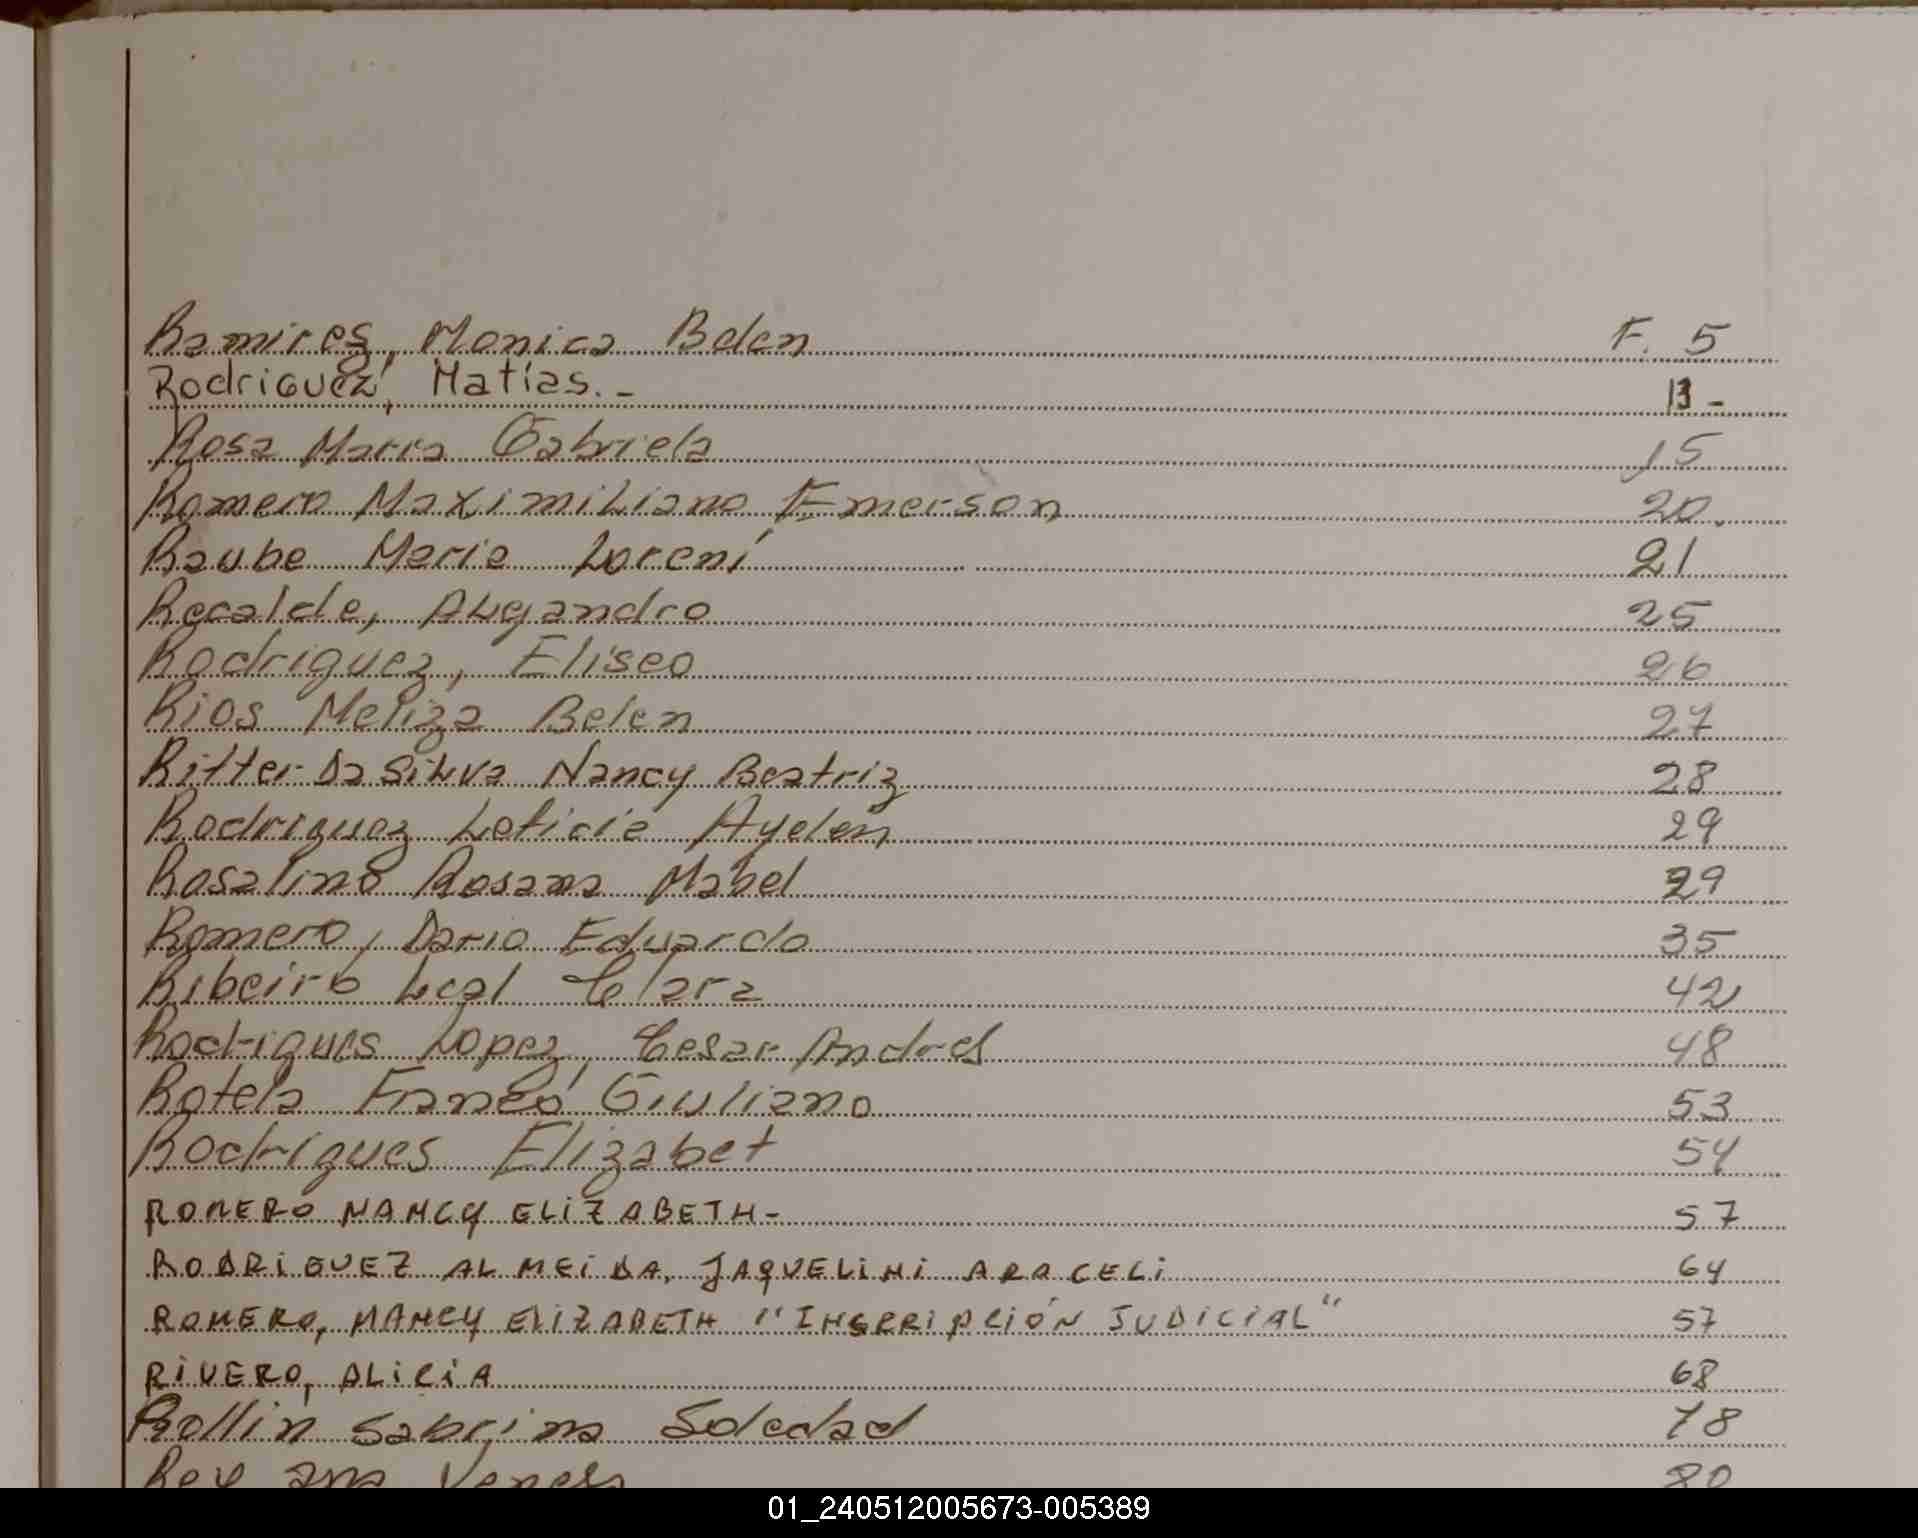 Ramirez, Monica Belen F. 5
Rodriguez, Matías.- 13-
Rosa Maria Gabriela 15
Romero Maximiliano Emerson 20.
Raube Maria Lorení 21
Recalde, Alejandro 25
Rodriguez, Eliseo 26
Rios Meliza Belen 27
Ritter Da Silva Nancy Beatriz 28
Rodriguez Leticia Ayelén 29
Rosalino Rosana Mabel 29
Romero, Dario Eduardo 35
Ribeiro Leal Clara 42
Rodrigues Lopez, Cesar Andres 48
Rotela Franco Giuliano 53
Rodrigues Elizabet 54
ROMERO NANCY ELIZABETH- 57
RODRIGUEZ ALMEIDA, JAQUELINI ARACELI 64
ROMERO, NANCY ELIZABETH "INSCRIPCIÓN JUDICIAL" 57
RIVERO, ALICIA 68
Rollin Sabrina Soledad 78
Rey Ana 80
01_240512005673-005389